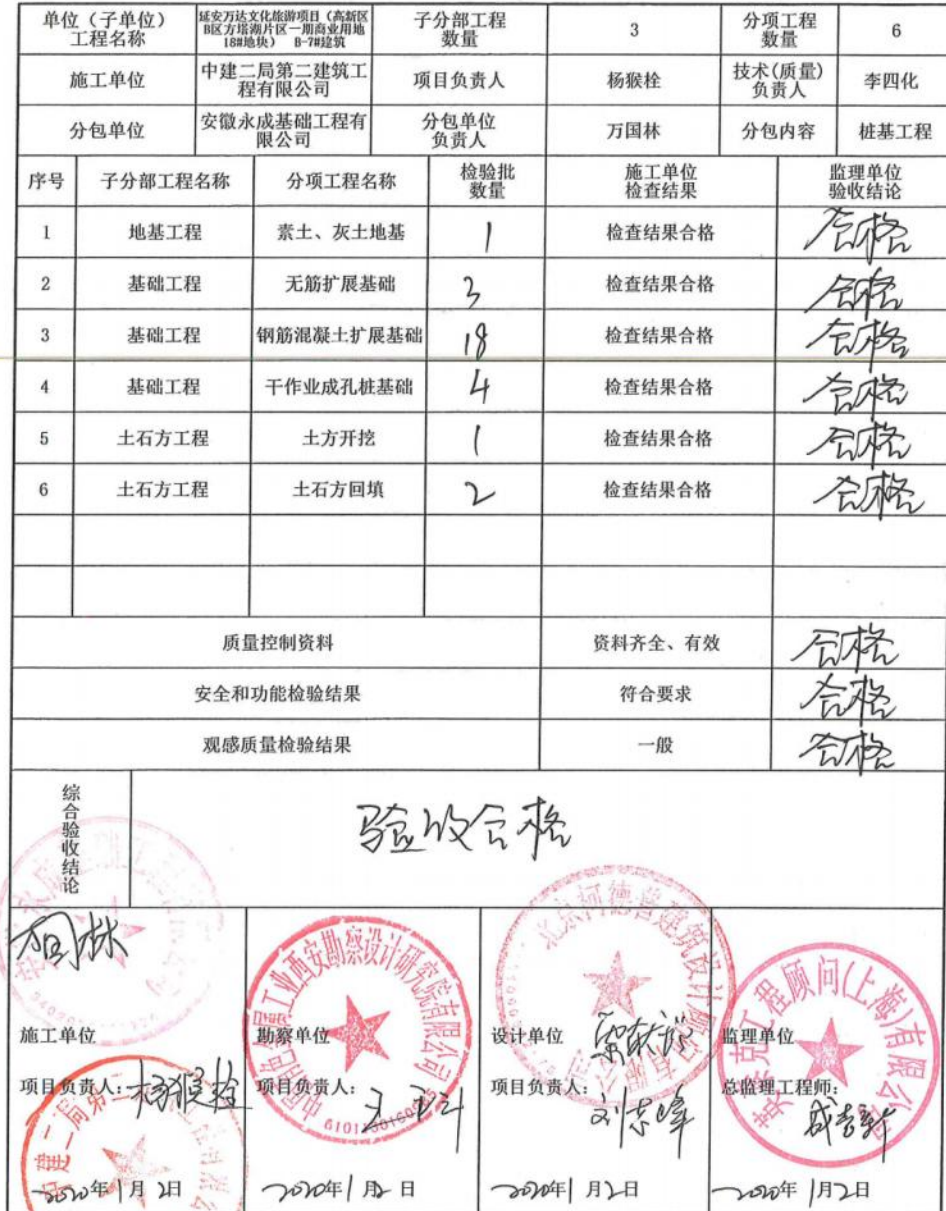 单位（子单位）
工程名称
延安万达文化旅游项目（高新区
B区方塔湖片区一期商业用地
18#地块） B-7#建筑
子分部工程
数量
3
分项工程
数量
6
施工单位
中建二局第二建筑工
程有限公司
项目负责人
杨猴栓
技术(质量)
负责人
李四化
分包单位
安徽永成基础工程有
限公司
分包单位
负责人
万国林
分包内容
桩基工程
序号
子分部工程名称
分项工程名称
检验批
数量
施工单位
检查结果
监理单位
验收结论
1 地基工程 素土、灰土地基 1 检查结果合格 合格
2 基础工程 无筋扩展基础 3 检查结果合格 合格
3 基础工程 钢筋混凝土扩展基础 18 检查结果合格 合格
4 基础工程 干作业成孔桩基础 4 检查结果合格 合格
5 土石方工程 土方开挖 1 检查结果合格 合格
6 土石方工程 土石方回填 2 检查结果合格 合格
质量控制资料 资料齐全、有效 合格
安全和功能检验结果 符合要求 合格
观感质量检验结果 一般 合格
综合验收结论
验收合格
万国林
施工单位
项目负责人：杨猴栓
中建二局第二
2020年1月2日
西安勘察设计研究院有限公司
勘察单位
项目负责人：
2020年1月2日
建筑设计
设计单位
项目负责人：
刘志峰
2020年1月2日
工程顾问(上海)有限公司
监理单位
总监理工程师：
2020年1月2日